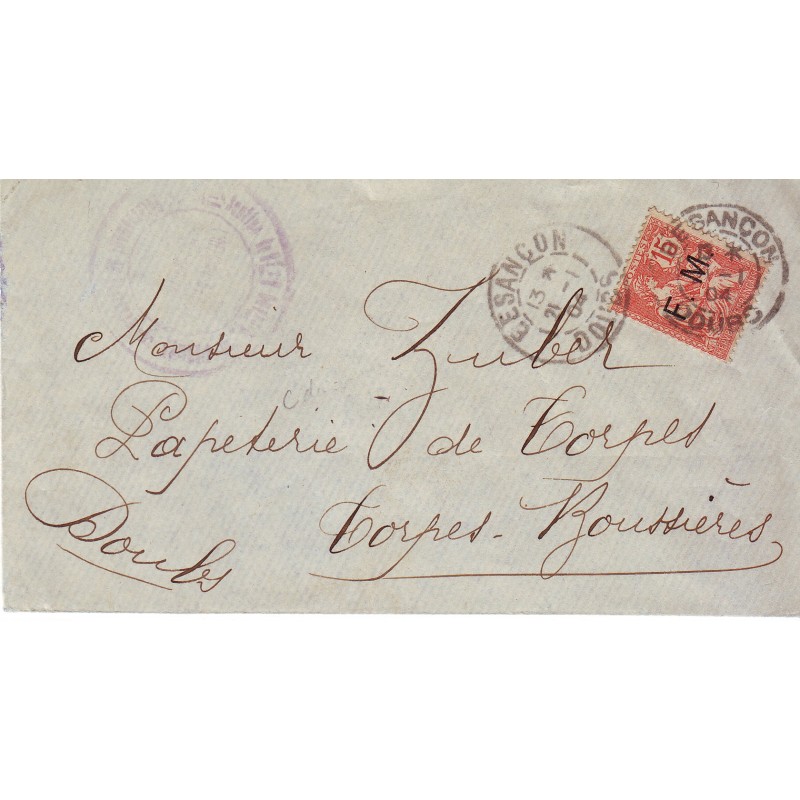 BESANÇON
13 * 1-1
21 04
DOUBS
BESANÇON
DOUBS
15
F. M.
Monsieur Zuber
Papeterie de Torpes
Torpes-Boussières
Doubs